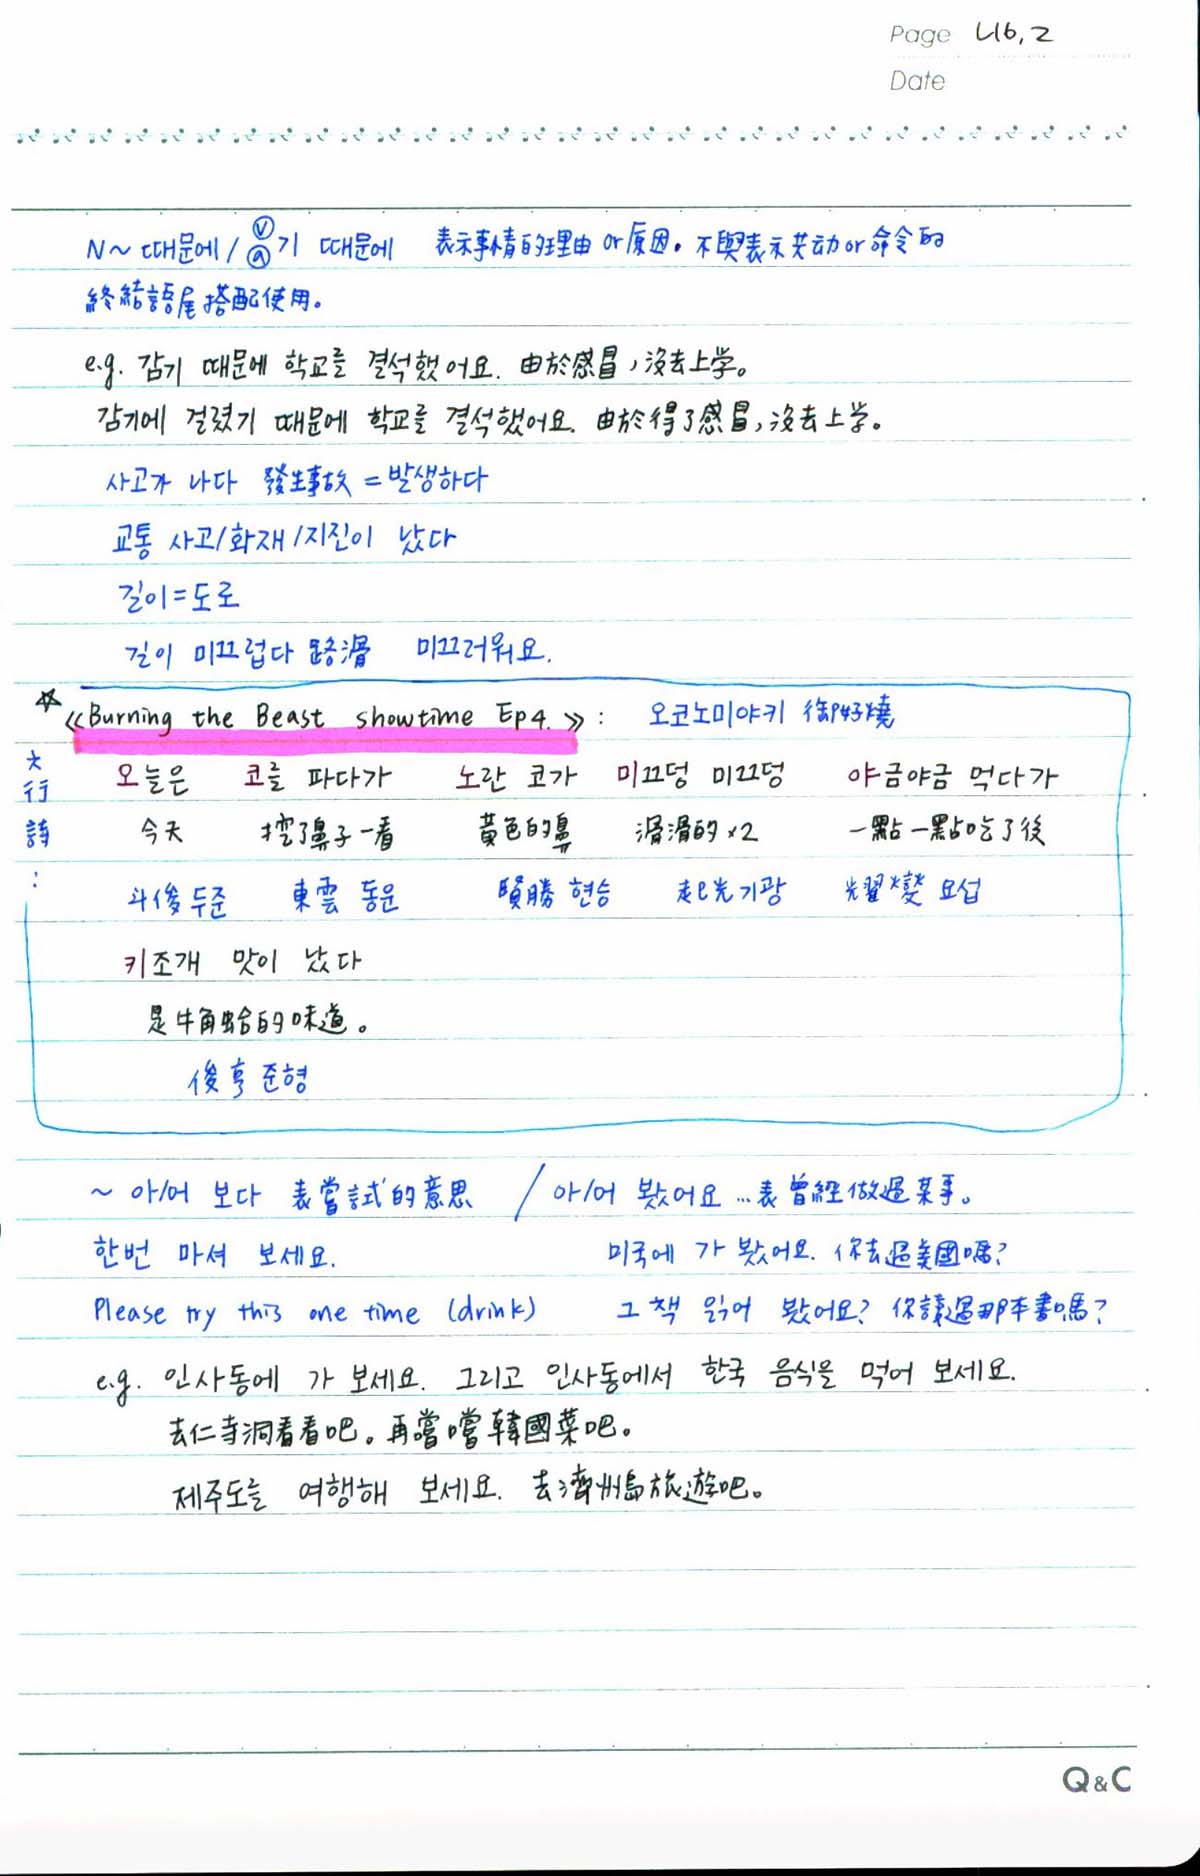 Page 46, 2
Date
N~ 때문에/ⓥⓐ기 때문에 表示事情的理由 or 原因。不與表示共动 or 命令的
終結語尾搭配使用。
e.g. 감기 때문에 학교를 결석했어요. 由於感冒，沒去上学。
감기에 걸렸기 때문에 학교를 결석했어요. 由於得了感冒，沒去上学。
사고가 나다 發生事故 = 발생하다
교통 사고/화재/지진이 났다
길이=도로
길이 미끄럽다 路滑 미끄러워요.
☆ 《Burning the Beast showtime Ep4.》: 오코노미야키 御好燒
六行詩: 오늘은 코를 파다가 노란 코가 미끄덩 미끄덩 야금야금 먹다가
今天 挖了鼻子一看 黃色的鼻 滑滑的×2 一點一點吃了後
斗俊 두준 東雲 동운 賢勝 현승 起光 기광 耀燮 요섭
키조개 맛이 났다
是牛角蛤的味道。
俊亨 준형
~ 아/어 보다 表嘗試的意思 / 아/어 봤어요 ...表曾經做過某事。
한번 마셔 보세요. 미국에 가 봤어요. 你去過美國嗎?
Please try this one time (drink) 그 책 읽어 봤어요? 你讀過那本書嗎?
e.g. 인사동에 가 보세요. 그리고 인사동에서 한국 음식을 먹어 보세요.
去仁寺洞看看吧。再嚐嚐韓國菜吧。
제주도를 여행해 보세요. 去濟州島旅遊吧。
Q&C